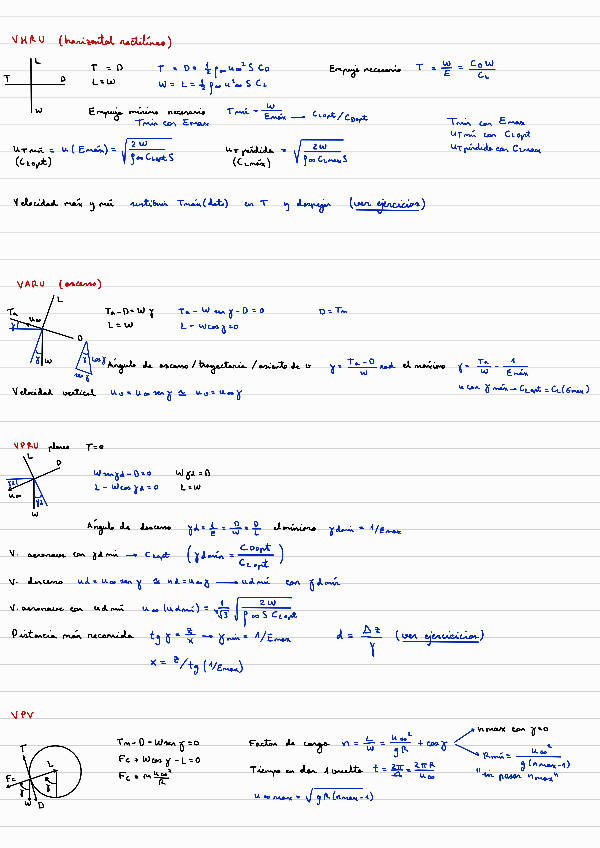 VHRU (horizontal rectilíneo)
L
T D
W
T = D T = D = 1/2 ρ∞ u∞² S C_D Empuje necesario T = W/E = C_D W/C_L
L = W W = L = 1/2 ρ∞ u²∞ S C_L
Empuje mínimo necesario Tmín = W/Emáx → C_Lopt/C_Dopt
Tmin con Emax
Tmin con Emax
u_Tmín con C_Lopt
u_T pérdida con C_Lmax
u_Tmín = u(Emáx) = √(2W/ρ∞ C_Lopt S) u_T pérdida = √(2W/ρ∞ C_Lmax S)
(C_Lopt) (C_Lmáx)
Velocidad máx y mín sustituir Tmáx (dato) en T y despejar (ver ejercicios)
VARU (ascenso)
L
Ta u∞
γ
D
γ W
γ cosγ
senγ
Ta - D = W γ Ta - W sen γ - D = 0 D = Tm
L = W L - W cos γ = 0
Ángulo de ascenso / trayectoria / asiento de v γ = (Ta - D)/W rad el máximo γ = Ta/W - 1/Emáx
u con γ máx → C_Lopt = C_L(Emax)
Velocidad vertical u_v = u∞ sen γ ≃ u_v = u∞ γ
VPRU planeo T=0
L
D
γd
u∞
γd
W
W sen γd - D = 0 W γd = D
L - W cos γd = 0 L = W
Ángulo de descenso γd = 1/E = D/W = D/L el mínimo γdmin = 1/Emax
V. aeronave con γd min → C_Lopt (γdmín = C_Dopt/C_Lopt)
V. descenso ud = u∞ sen γ ≃ ud = u∞ γ → ud mín con γ dmín
V. aeronave con ud mín u∞ (udmín) = 1/⁴√3 √(2W/ρ∞ S C_Lopt)
Distancia máx recorrida tg γ = z/x → γmin = 1/Emax d = Δz/γ (ver ejercicicios)
x = z/tg (1/Emax)
VPV
T
L
Fc
γ
γ
W D
Tm - D - W sen γ = 0
Fc + W cos γ - L = 0
Fc = m u∞²/R
Factor de carga n = L/W = u∞²/gR + cos γ
n max con γ=0
Rmín = u∞²/g(nmax-1)
"sin pasar nmax"
Tiempo en dar 1 vuelta t = 2π/Ω = 2πR/u∞
u∞max = √gR(nmax-1)